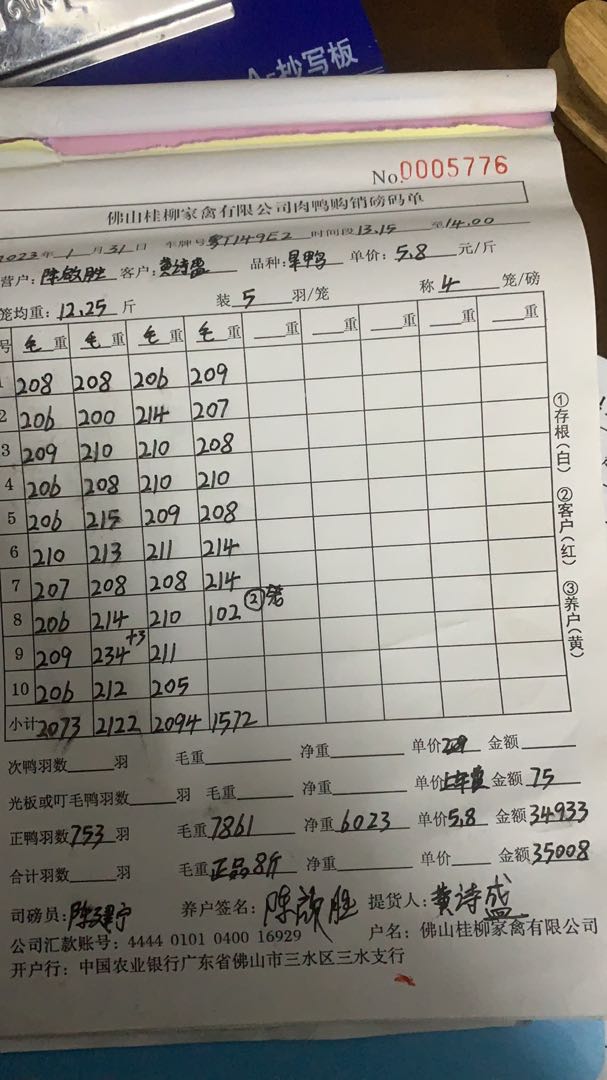 抄写板
No.0005776
佛山桂柳家禽有限公司肉鸭购销磅码单
2023年1月31日 车牌号粤T149E2 时间段13.15至14.00
营户:陈敬胜 客户:黄诗盛 品种:旱鸭 单价:5.8元/斤
笼均重:12.25斤 装5羽/笼 称4笼/磅
号 毛重 毛重 毛重 毛重 重 重 重 重
1 208 208 206 209
2 206 200 214 207
3 209 210 210 208
4 206 208 210 210
5 206 215 209 208
6 210 213 211 214
7 207 208 208 214
8 206 214 210 102 ②笼
9 209 234+3 211
10 206 212 205
小计 2073 2122 2094 1572
①存根(白) ②客户(红) ③养户(黄)
次鸭羽数 羽 毛重 净重 单价 金额
光板或叮毛鸭羽数 羽 毛重 净重 单价 金额75
正鸭羽数753羽 毛重7861 净重6023 单价5.8 金额34933
合计羽数 羽 毛重正品8斤 净重 单价 金额35008
司磅员: 养户签名:陈敬胜 提货人:黄诗盛
公司汇款账号:4444 0101 0400 16929 户名:佛山桂柳家禽有限公司
开户行:中国农业银行广东省佛山市三水区三水支行